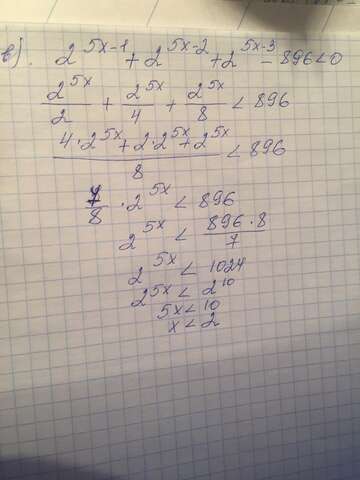 в). 2^{5x-1} + 2^{5x-2} + 2^{5x-3} - 896 < 0
\frac{2^{5x}}{2} + \frac{2^{5x}}{4} + \frac{2^{5x}}{8} < 896
\frac{4 \cdot 2^{5x} + 2 \cdot 2^{5x} + 2^{5x}}{8} < 896
\frac{7}{8} \cdot 2^{5x} < 896
2^{5x} < \frac{896 \cdot 8}{7}
2^{5x} < 1024
2^{5x} < 2^{10}
5x < 10
x < 2